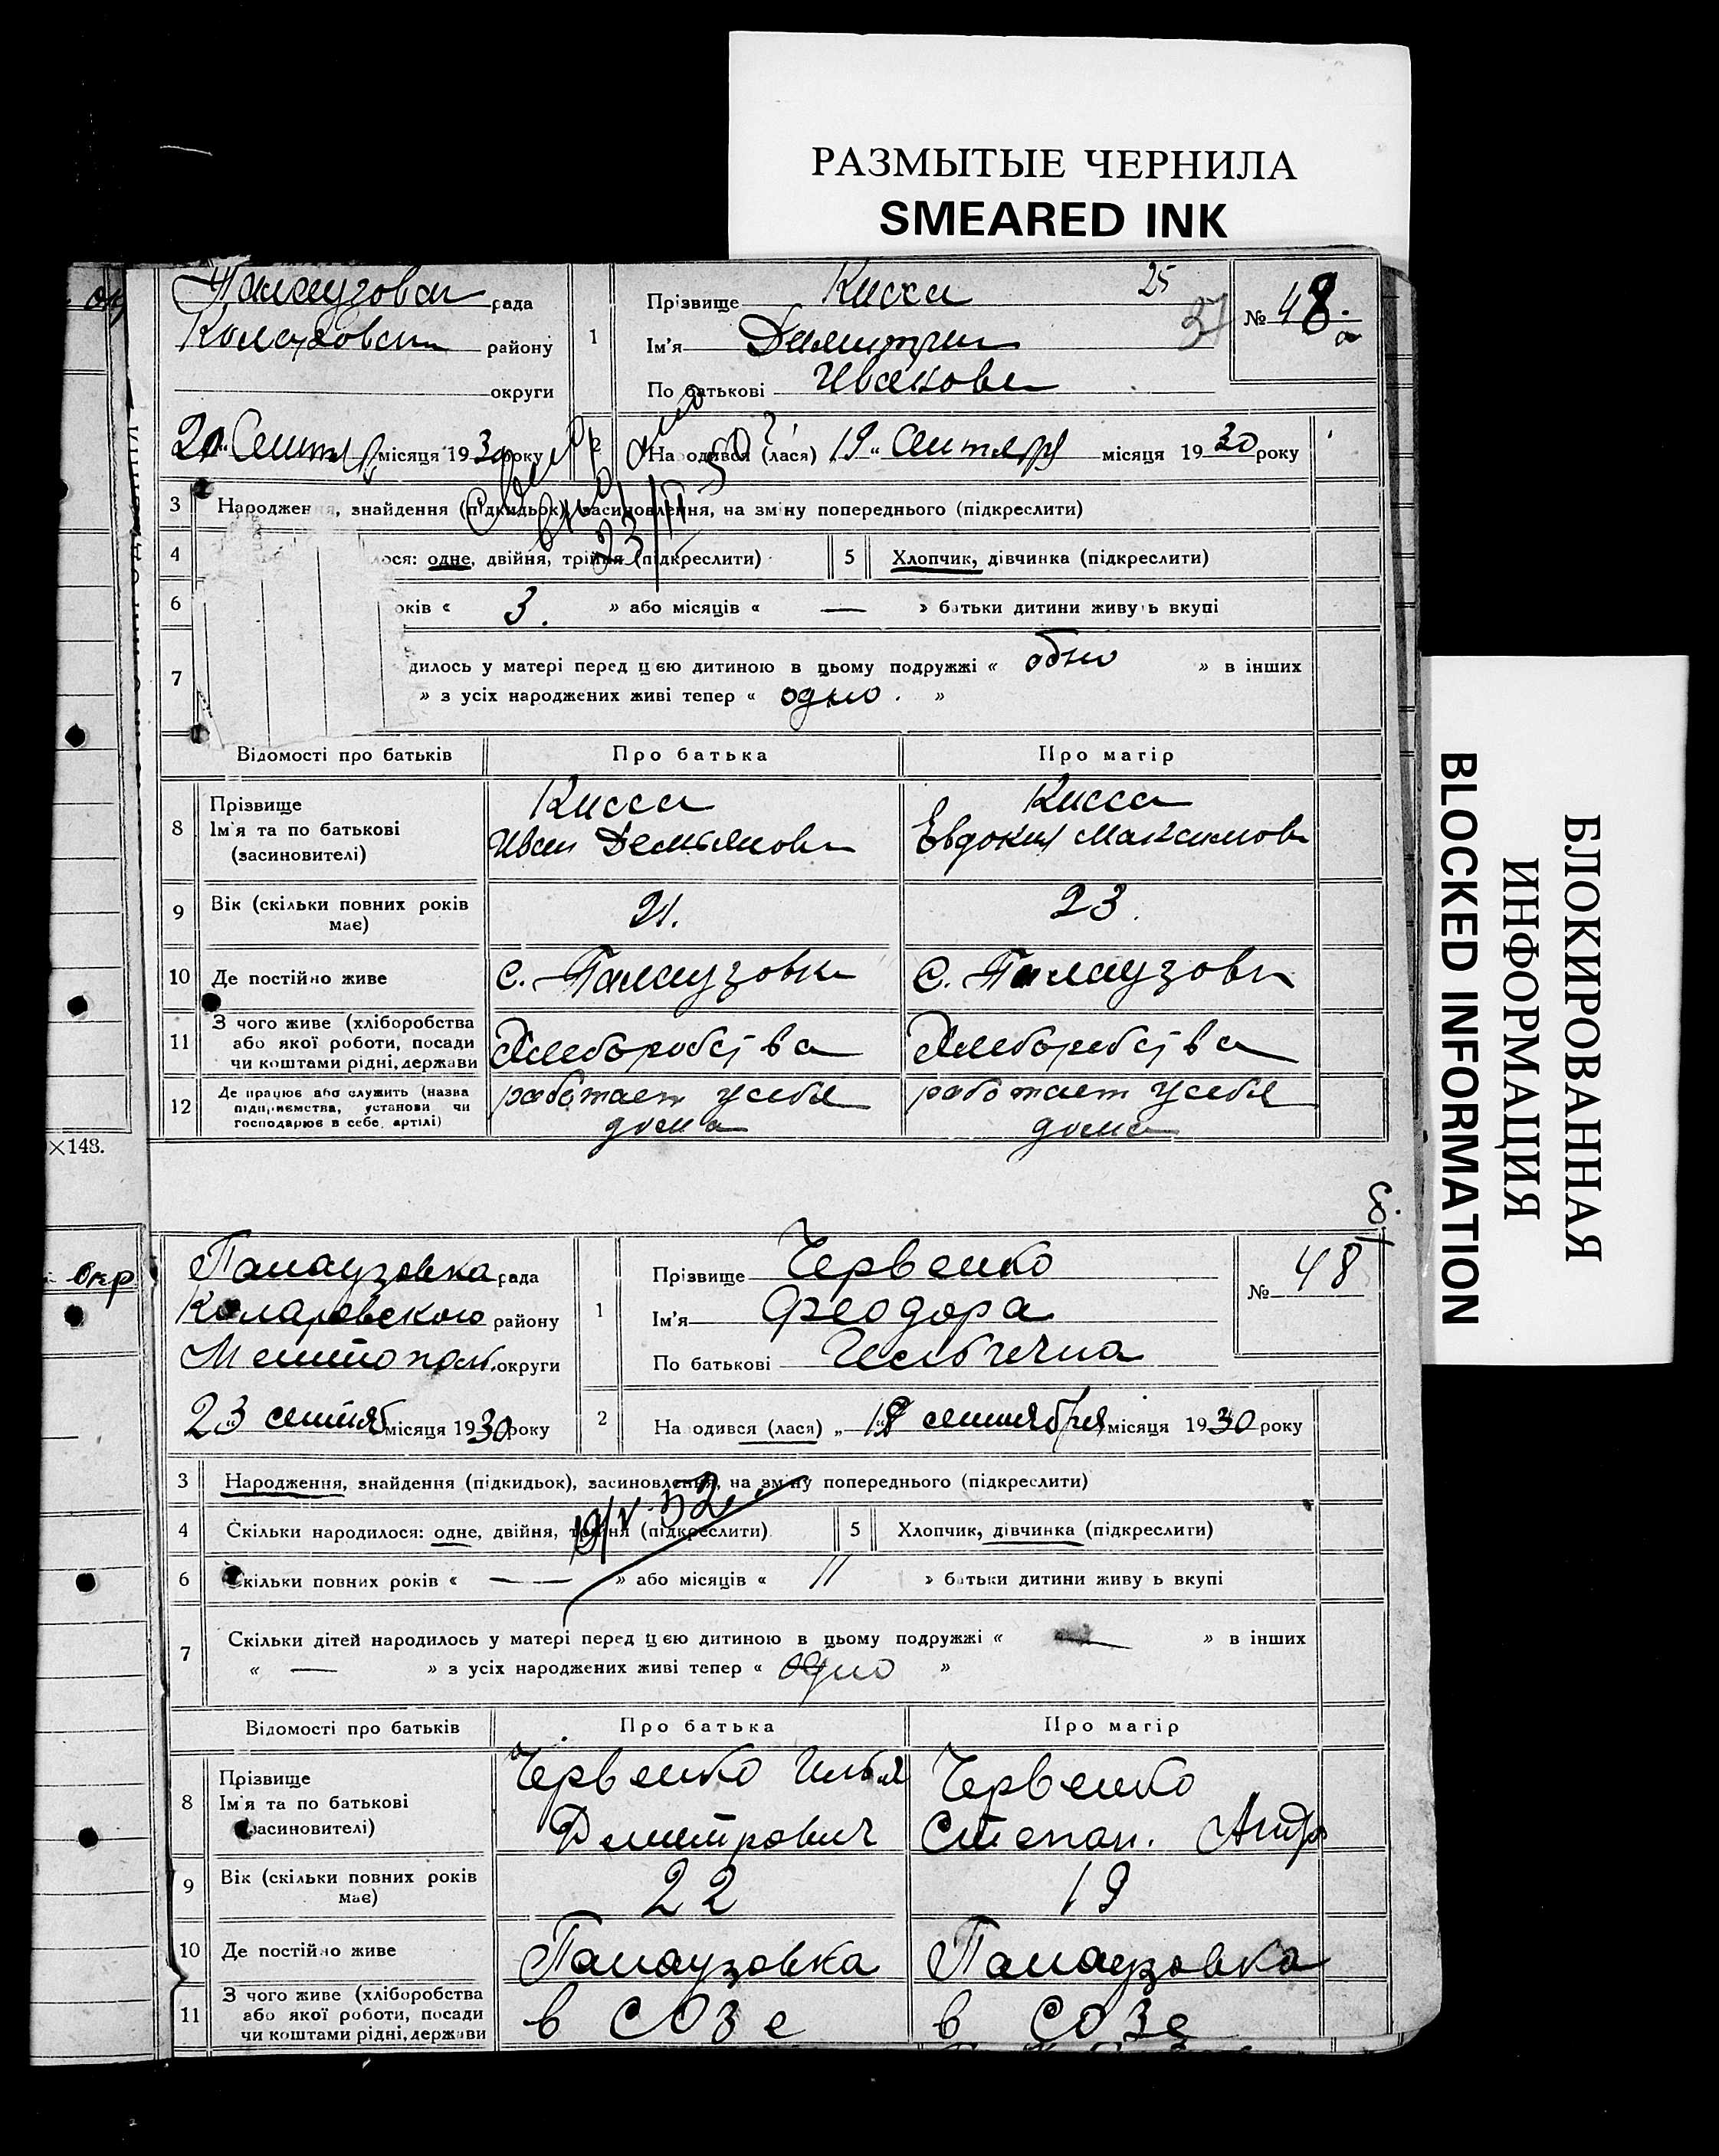 РАЗМЫТЫЕ ЧЕРНИЛА
SMEARED INK
БЛОКИРОВАННАЯ
ИНФОРМАЦИЯ
BLOCKED INFORMATION
рада
району
округи
1
Прізвище Кисса 25
Ім'я Димитрий
По батькові Иванови
№ 48.
а
20 Сентяб місяця 1930 року
2
На одився (лася) 19 „ Сентября місяця 1930 року
3 Народжен я, знайдення (підкидьок), засиновлення, на зміну попереднього (підкреслити)
23/II 50
4 лося: одне, двійня, трійня (підкреслити)
5 Хлопчик, дівчинка (підкреслити)
6 оків « 3. » або місяців « — » батьки дитини живуть вкупі
7 дилось у матері перед цією дитиною в цьому подружжі « одно » в інших
» з усіх народжених живі тепер « одно. »
Відомості про батьків Про батька Про матір
8 Прізвище
Ім'я та по батькові
(засновителі)
Кисса
Иван Демьянови
Кисса
Евдокия Максимов
9 Вік (скільки повних років
має)
21. 23.
10 Де постійно живе с. Палаузовка с. Палаузовк
11 З чого живе (хліборобства
або якої роботи, посади
чи коштами рідні, держави
Хлеборобства Хлеборобства
12 Де працює або служить (назва
підприємства, установи чи
господарює в себе, артілі)
работает у себя
дома
работает у себя
дома
×148.
Окр
Палаузовка рада
Коларовского району
Мелитопол. округи
1
Прізвище Червенко
Ім'я Феодора
По батькові Ильбична
№ 48
23 сентяб місяця 1930 року
2
На одився (лася) „ 18 сентября місяця 1930 року
3 Народження, знайдення (підкидьок), засиновлення, на зміну попереднього (підкреслити)
19/V-52
4 Скільки народилося: одне, двійня, трійня (підкреслити)
5 Хлопчик, дівчинка (підкреслити)
6 Скільки повних років « — » або місяців « 11 » батьки дитини живу ь вкупі
7 Скільки дітей народилось у матері перед цією дитиною в цьому подружжі « — » в інших
« — » з усіх народжених живі тепер « одно »
Відомості про батьків Про батька Про матір
8 Прізвище
Ім'я та по батькові
(засиновителі)
Червенко Илья
Дмитрович
Червенко
Степан.
9 Вік (скільки повних років
має)
22 19
10 Де постійно живе Палаузовка Палаузовка
11 З чого живе (хліборобства
або якої роботи, посади
чи коштами рідні, держави
в СОЗе в СОЗе